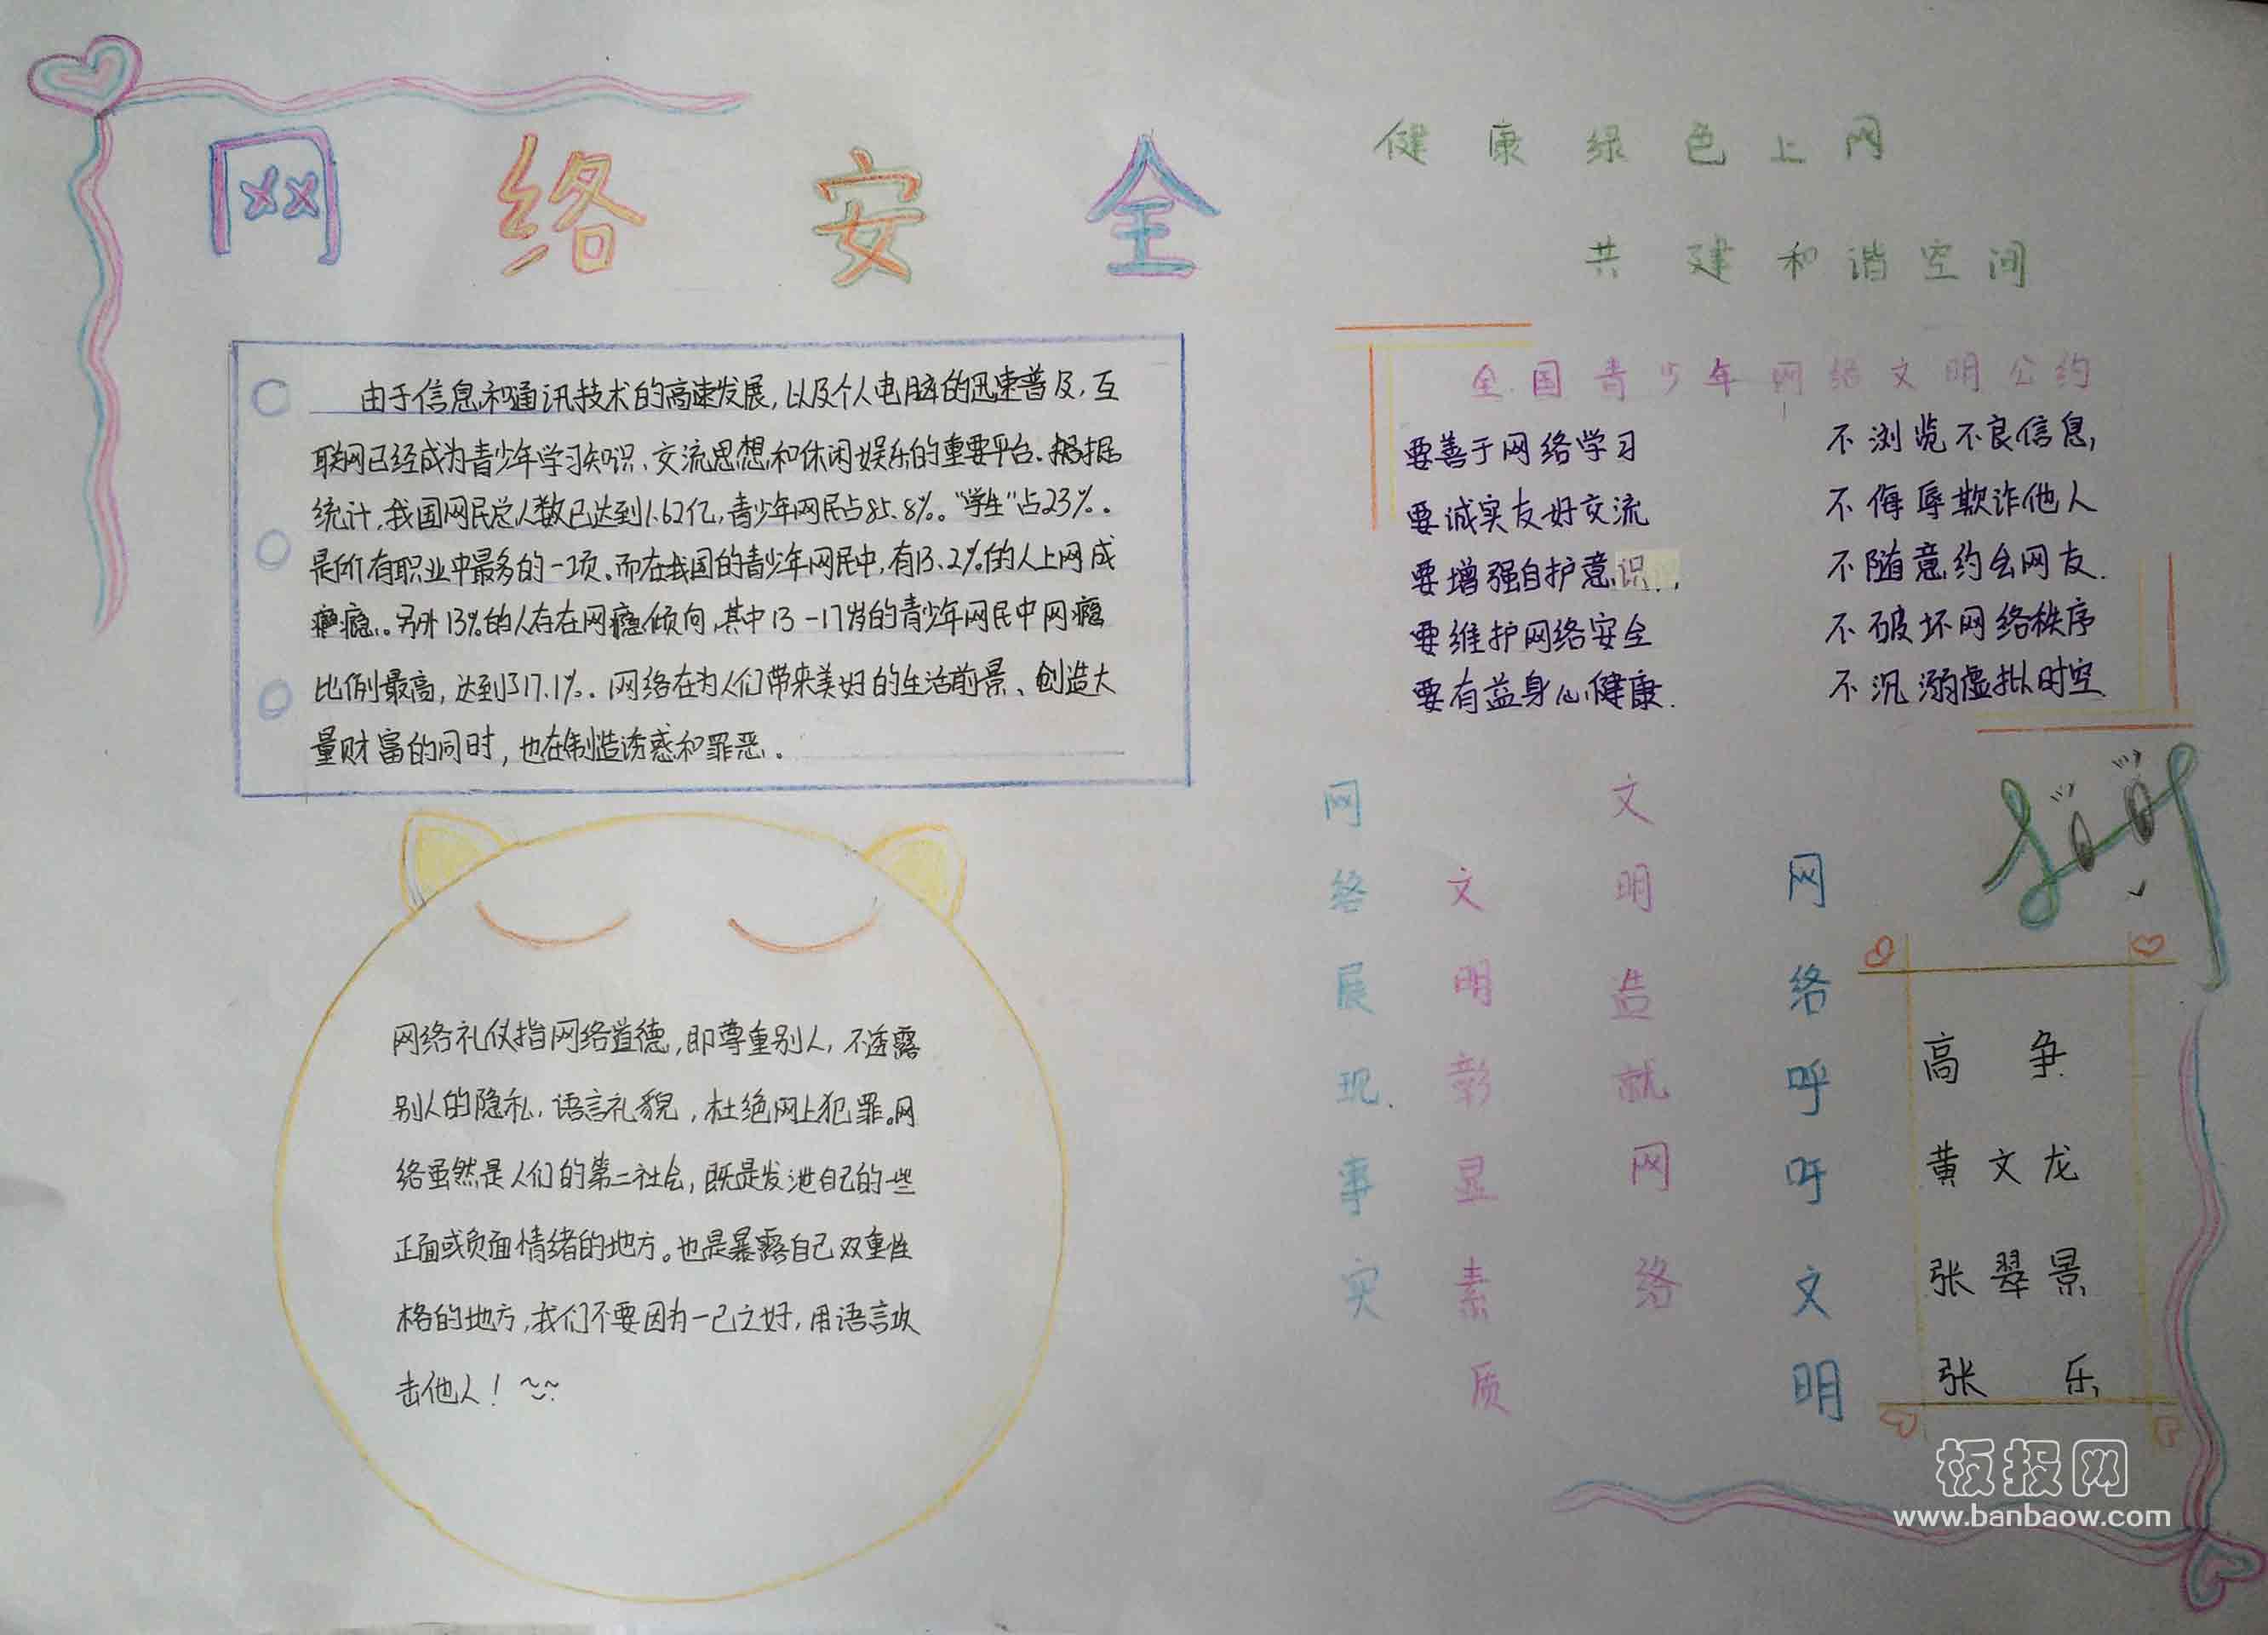 网络安全
由于信息和通讯技术的高速发展,以及个人电脑的迅速普及,互
联网已经成为青少年学习知识、交流思想和休闲娱乐的重要平台.据
统计,我国网民总人数已达到1.62亿,青少年网民占85.8%。“学生”占23%.
是所有职业中最多的一项。而在我国的青少年网民中,有13.2%的人上网成
瘾。另外13%的人存在网瘾倾向,其中13-17岁的青少年网民中网瘾
比例最高,达到317.1%.网络在为人们带来美好的生活前景、创造大
量财富的同时,也在制造诱惑和罪恶.
网络礼仪指网络道德,即尊重别人,不透露
别人的隐私,语言礼貌,杜绝网上犯罪。网
络虽然是人们的第二社会,既是发泄自己的一些
正面或负面情绪的地方。也是暴露自己双重性
格的地方,我们不要因为一己之好,用语言攻
击他人!
健康绿色上网
共建和谐空间
全国青少年网络文明公约
要善于网络学习
不浏览不良信息,
要诚实友好交流
不侮辱欺诈他人
要增强自护意识,
不随意约会网友.
要维护网络安全
不破坏网络秩序
要有益身心健康.
不沉溺虚拟时空
网络展现事实
文明彰显素质
文明造就网络
网络呼吁文明
高争
黄文龙
张翠景
张乐
板报网
www.banbaow.com